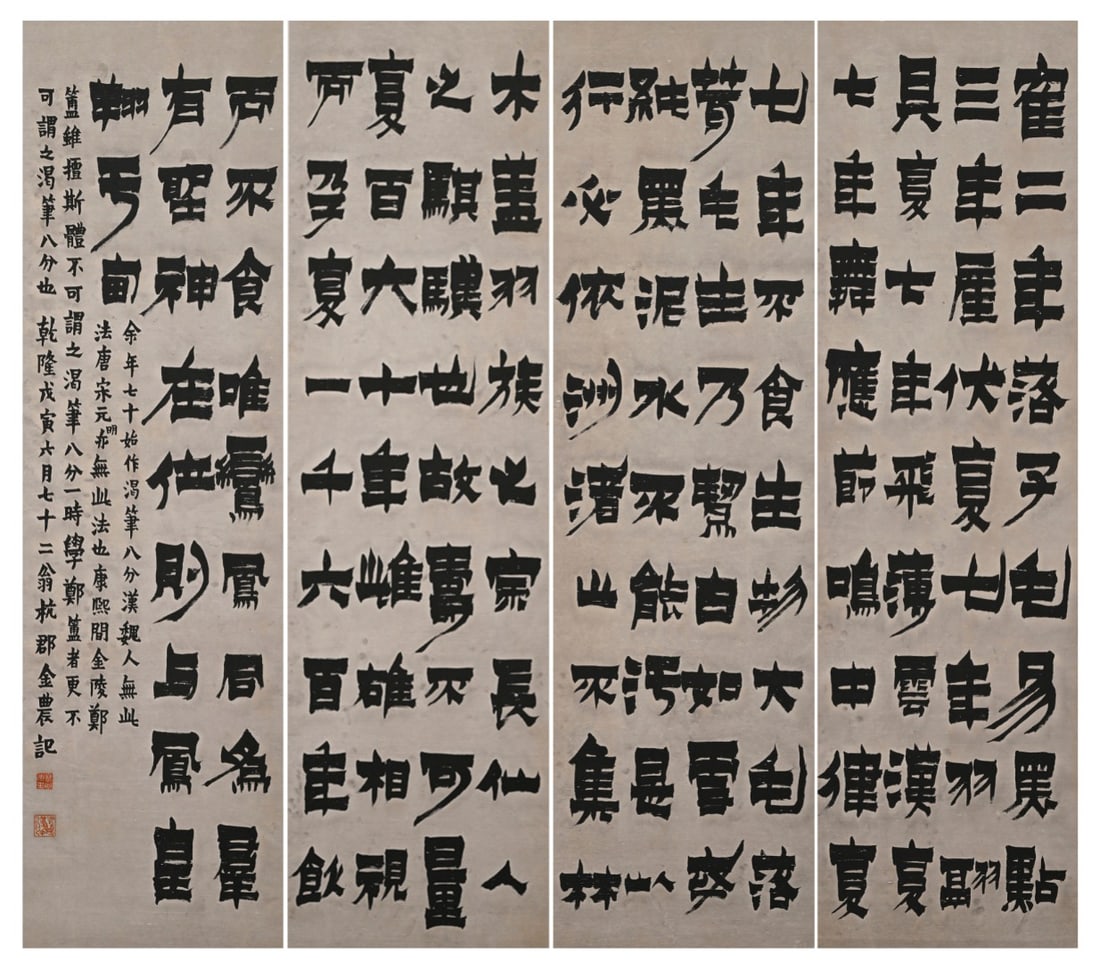 寉二年落子毛易黑點
三年產伏复七年羽翮
具复七年飛薄雲漢复
七年舞應節鳴中律复
七年不食生物大毛落
茸毛生乃絜白如雪
純黑泥水不能汚是以
行必依洲渚止不集林
木蓋羽族之宗長仙人
之騏驥也故壽不可量
复百大十年雌雄相視
而孕复一千六百年飲
而不食唯鸞鳳同為羣
有聖神在位則与鳳皇
翱乎甸
余年七十始作渴筆八分漢魏人無此
法唐宋元明亦無此法也康熙間金陵鄭
簠雖擅斯體不可謂之渴筆八分一時學鄭簠者更不
可謂之渴筆八分也 乾隆戊寅六月七十二翁杭郡金農記